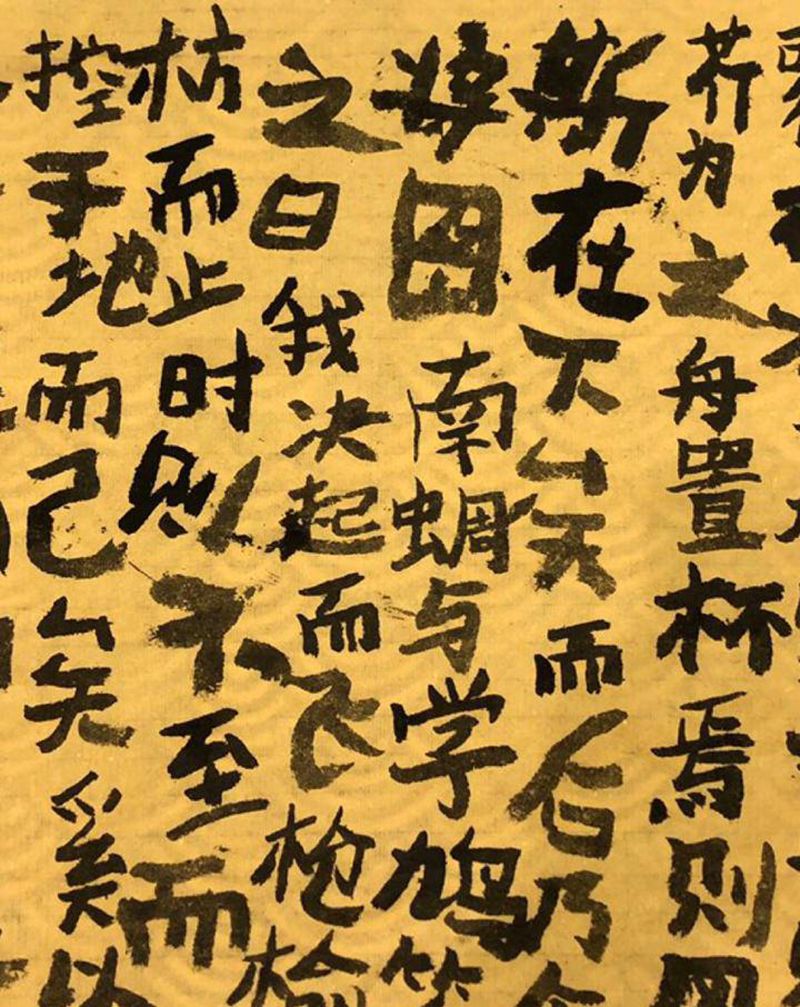 芥为之舟置杯焉则
斯在下矣而后乃今
将图南蜩与学鸠笑
之曰我决起而飞枪榆
枋而止时则不至而
控于地而已矣奚以